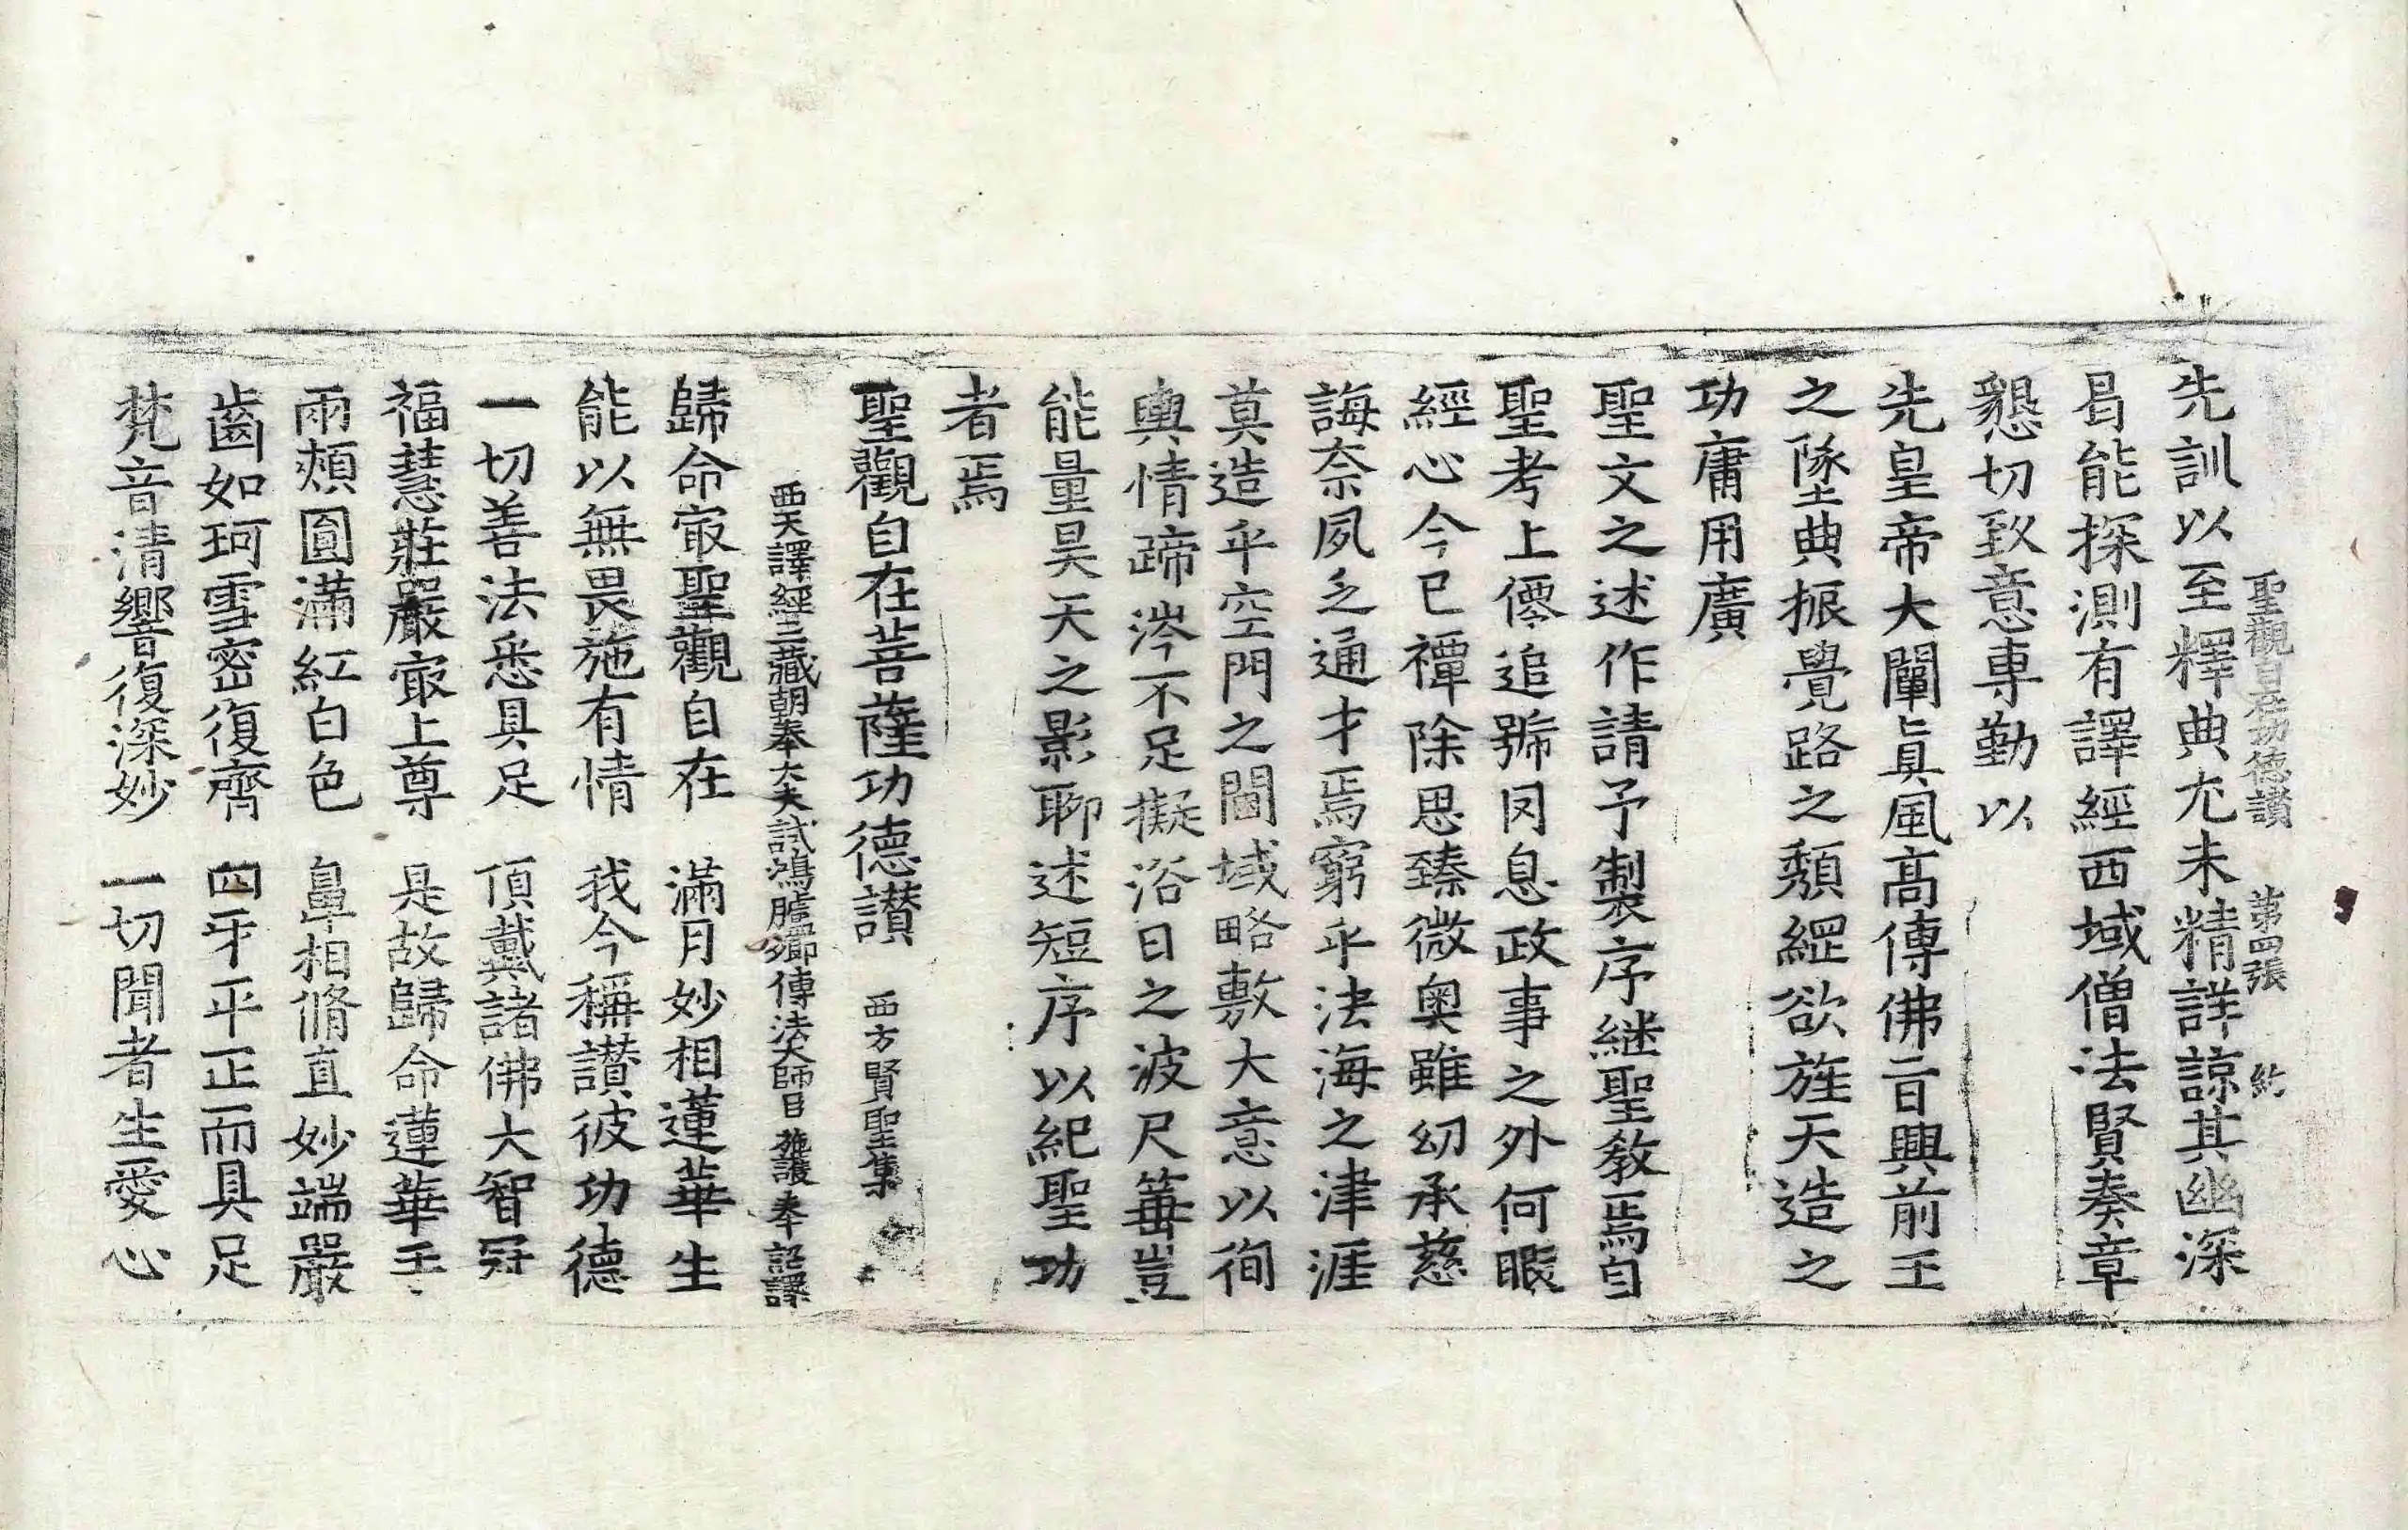 聖觀自在功德讃 第四張 約
先訓以至釋典尤未精詳諒其幽深
曷能探測有譯經西域僧法賢奏章
懇切致意專勤以
先皇帝大闡眞風高傳佛旨興前王
之墜典振覺路之頽綱欲旌天造之
功庸用廣
聖文之述作請予製序継聖敎焉自
聖考上僊追號罔息政事之外何暇
經心今已禫除思臻微奧雖幼承慈
誨奈夙乏通才焉窮乎法海之津涯
莫造乎空門之閫域略敷大意以徇
輿情蹄涔不足擬浴日之波尺箠豈
能量昊天之影聊述短序以紀聖功
者焉
聖觀自在菩薩功德讃 西方賢聖集
西天譯經三藏朝奉大夫試鴻臚卿傳法大師臣 施護 奉 詔譯
歸命㝡聖觀自在 滿月妙相蓮華生
能以無畏施有情 我今稱讃彼功德
一切善法悉具足 頂戴諸佛大智冠
福慧莊嚴㝡上尊 是故歸命蓮華王
兩頰圓滿紅白色 鼻相脩直妙端嚴
齒如珂雪密復齊 四牙平正而具足
梵音清響復深妙 一切聞者生愛心